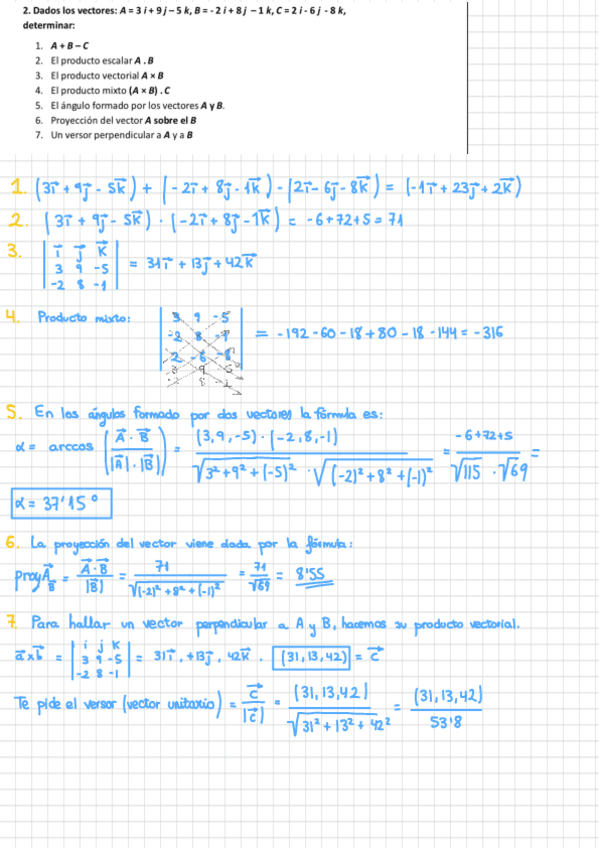 2. Dados los vectores: A = 3 i + 9 j – 5 k, B = - 2 i + 8 j – 1 k, C = 2 i - 6 j - 8 k,
determinar:
1. A + B – C
2. El producto escalar A . B
3. El producto vectorial A × B
4. El producto mixto (A × B) . C
5. El ángulo formado por los vectores A y B.
6. Proyección del vector A sobre el B
7. Un versor perpendicular a A y a B
1. (3i⃗ + 9j⃗ - 5k⃗) + (-2i⃗ + 8j⃗ - 1k⃗) - (2i⃗ - 6j⃗ - 8k⃗) = (-1i⃗ + 23j⃗ + 2k⃗)
2. (3i⃗ + 9j⃗ - 5k⃗) · (-2i⃗ + 8j⃗ - 1k⃗) = -6+72+5 = 71
3. | i⃗ j⃗ k⃗ |
| 3 9 -5 | = 31i⃗ + 13j⃗ + 42k⃗
| -2 8 -1 |
4. Producto mixto: | 3 9 -5 |
| -2 8 -1 | = -192 - 60 - 18 + 80 - 18 - 144 = -316
| 2 -6 -8 |
3 9 -5
8 -1
5. En los ángulos formado por dos vectores la fórmula es:
α = arccos (A⃗ · B⃗ / |A⃗| · |B⃗|) = (3,9,-5) · (-2,8,-1) / √3²+9²+(-5)² · √(-2)²+8²+(-1)² = -6+72+5 / √115 · √69 =
α = 37'15°
6. La proyección del vector viene dada por la fórmula:
proy A⃗ B⃗ = A⃗ · B⃗ / |B⃗| = 71 / √(-2)²+8²+(-1)² = 71 / √69 = 8'55
7. Para hallar un vector perpendicular a A y B, hacemos su producto vectorial.
a⃗ x b⃗ = | i j k |
| 3 9 -5 | = 31i⃗, +13j⃗, 42k⃗. (31,13,42) = c⃗
| -2 8 -1 |
Te pide el versor (vector unitario) = c⃗ / |c⃗| = (31,13,42) / √31²+13²+42² = (31,13,42) / 53'8